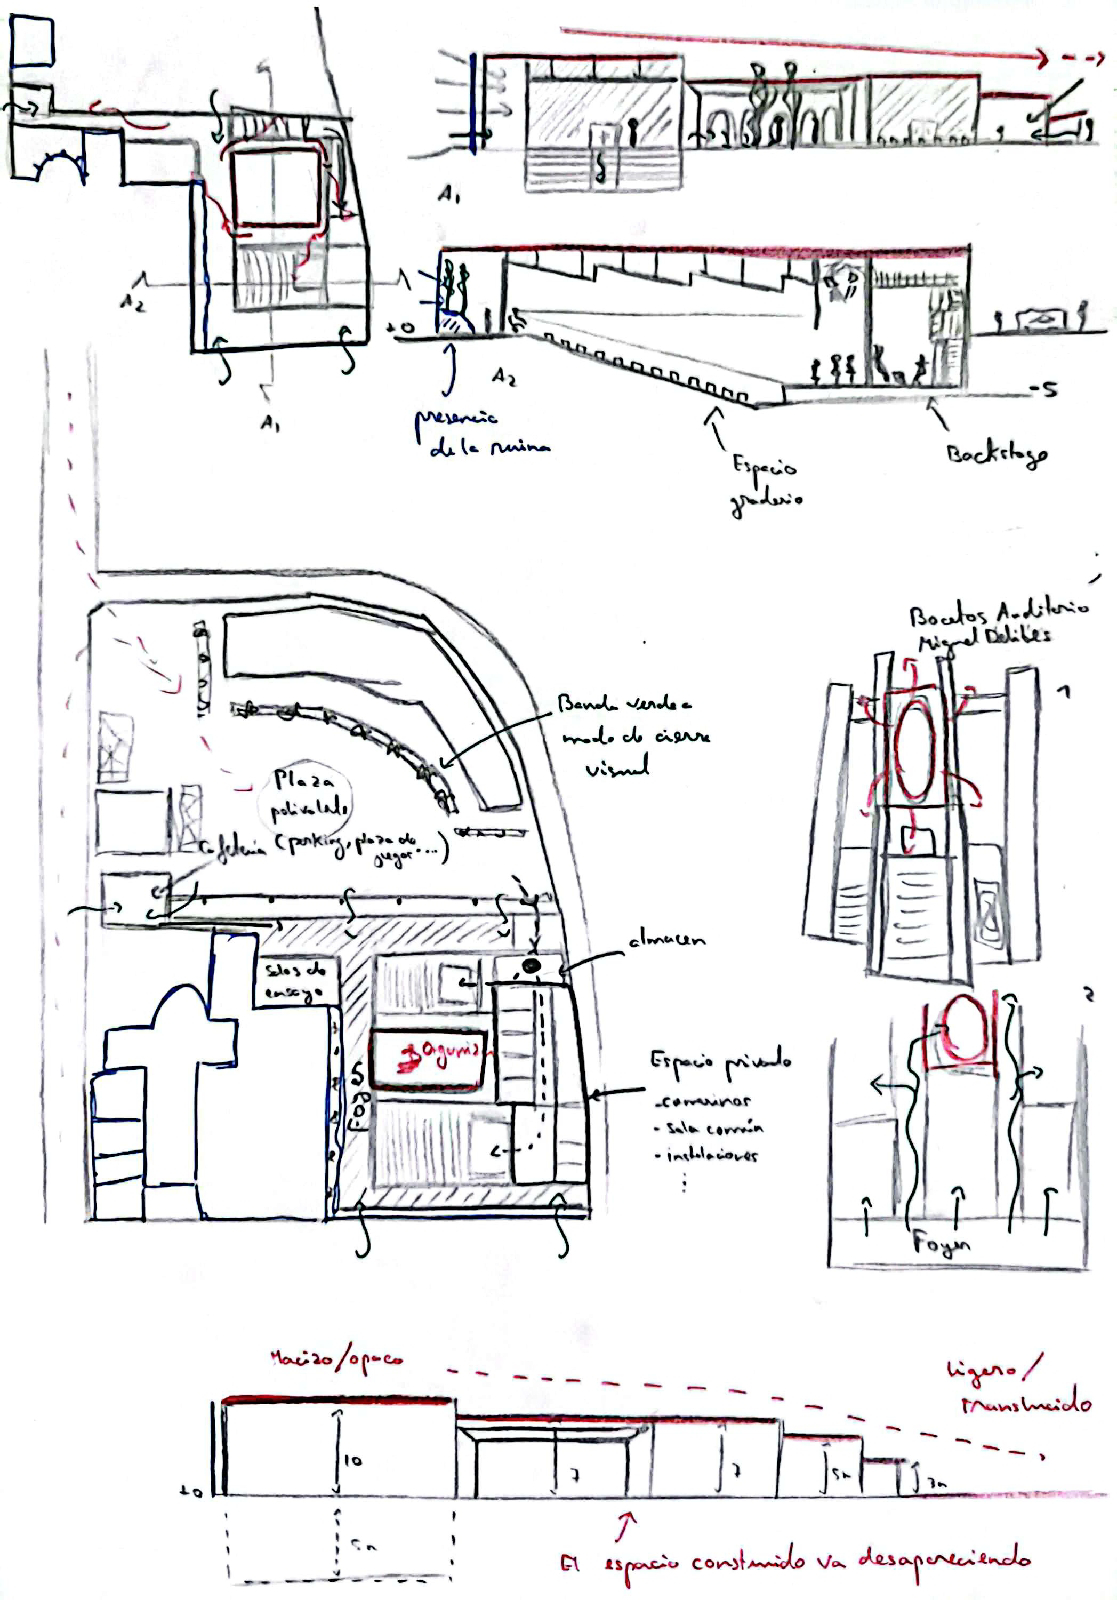 A1
A2
A1
A2
+0
-5
presencia
de la ruina
Espacio
graderio
Backstage
Bocetos Auditorio
Miguel Delibes
1
Banda verde a
modo de cierre
visual
Plaza
polivalente
(parking, plaza de
juegos...)
Cafetería
almacen
Salas de
ensayo
Espacio privado
-camerinos
- sala común
- instalaciones
2
Foyer
Macizo/opaco
Ligero/
translucido
10
7
7
5m
3m
±0
5m
El espacio construido va desapareciendo